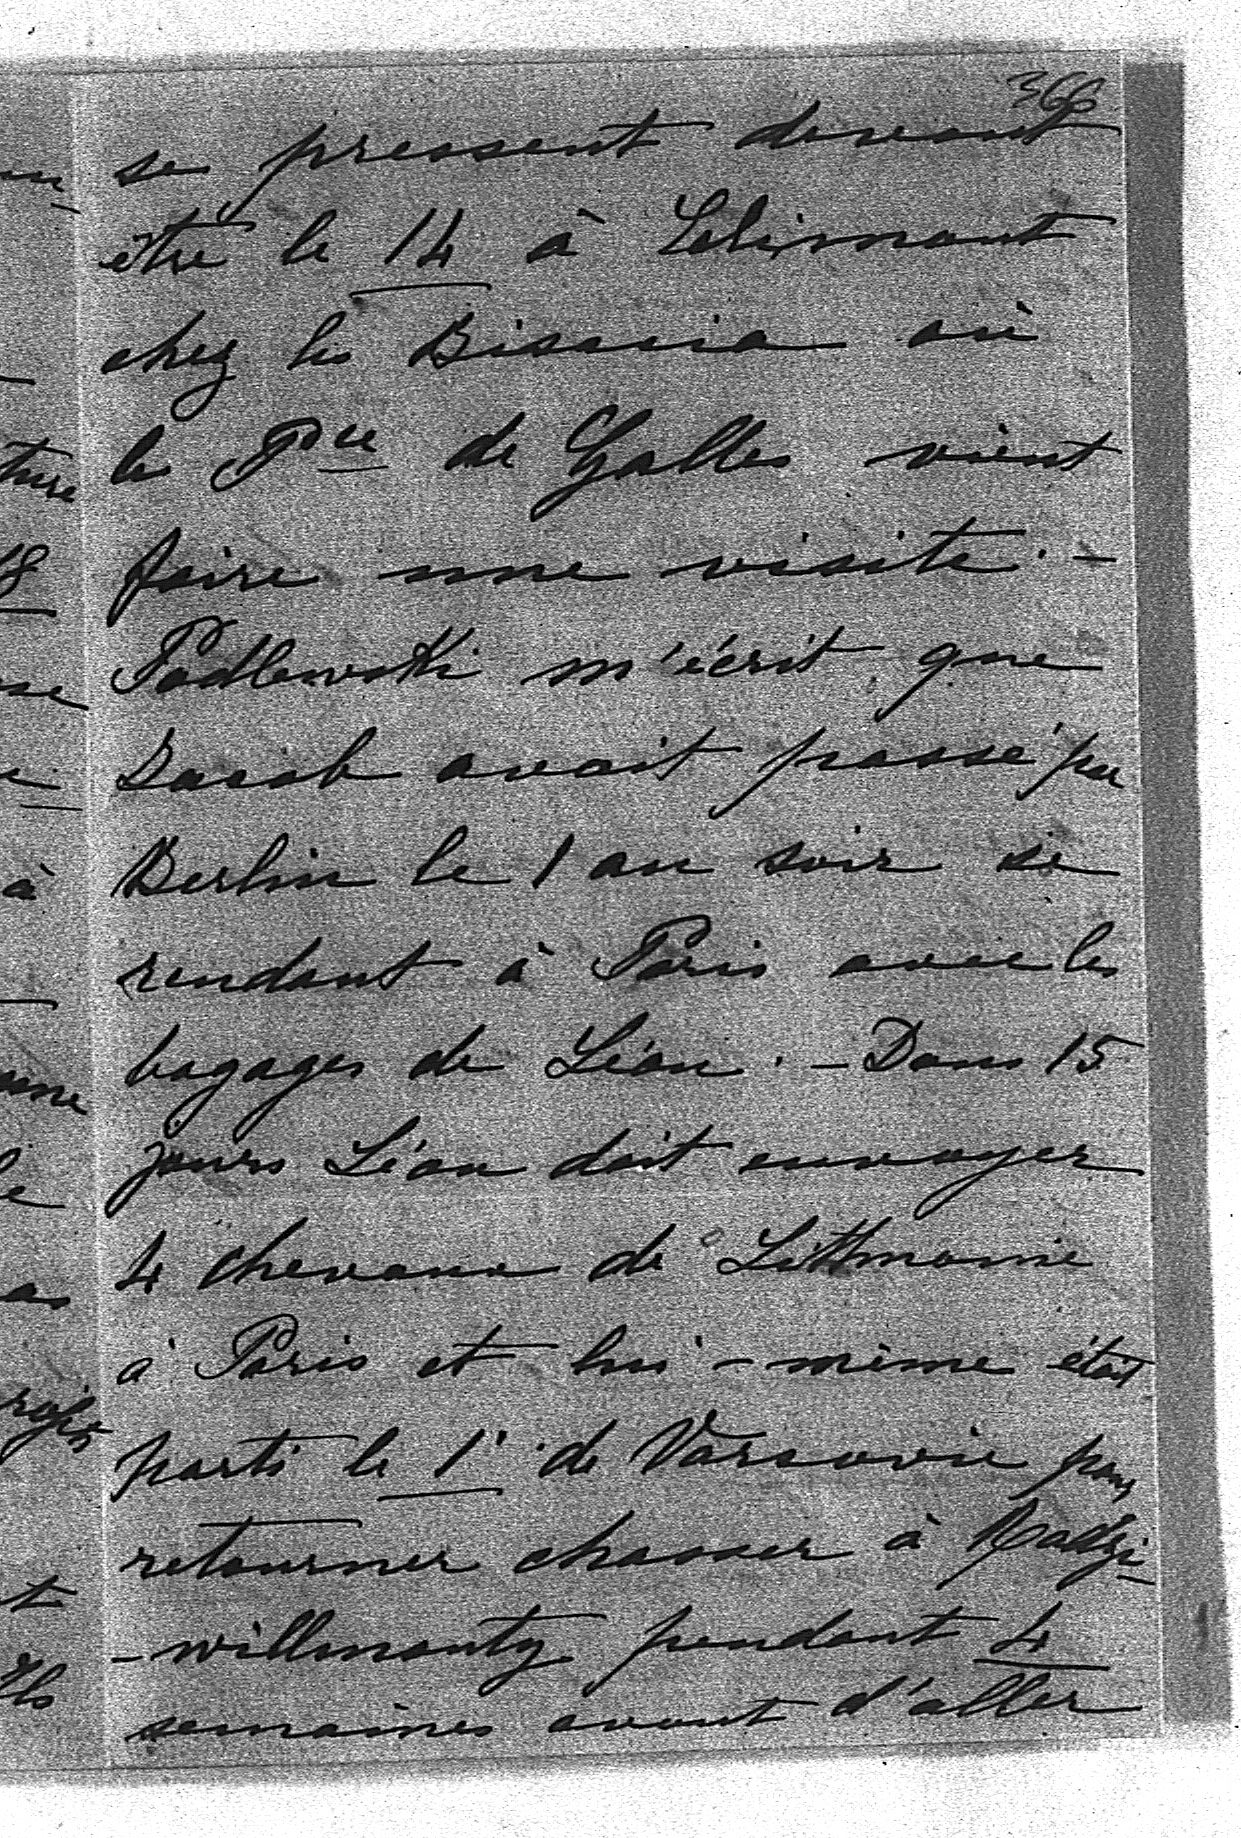 366
se pressent devant
être le 14 à Eclimont
chez les Bisaccia où
le Pce de Galles vient
faire une visite. -
Podlewski m'écrit que
Sacab avait passé par
Berlin le 1 au soir se
rendant à Paris avec les
bagages de Léon. - Dans 15
jours Léon doit envoyer
4 chevaux de Litthuanie
à Paris et lui-même était
parti le 1r de Varsovie pour
retourner chasser à Radzi-
-willmonty pendant 4
semaines avant d'aller